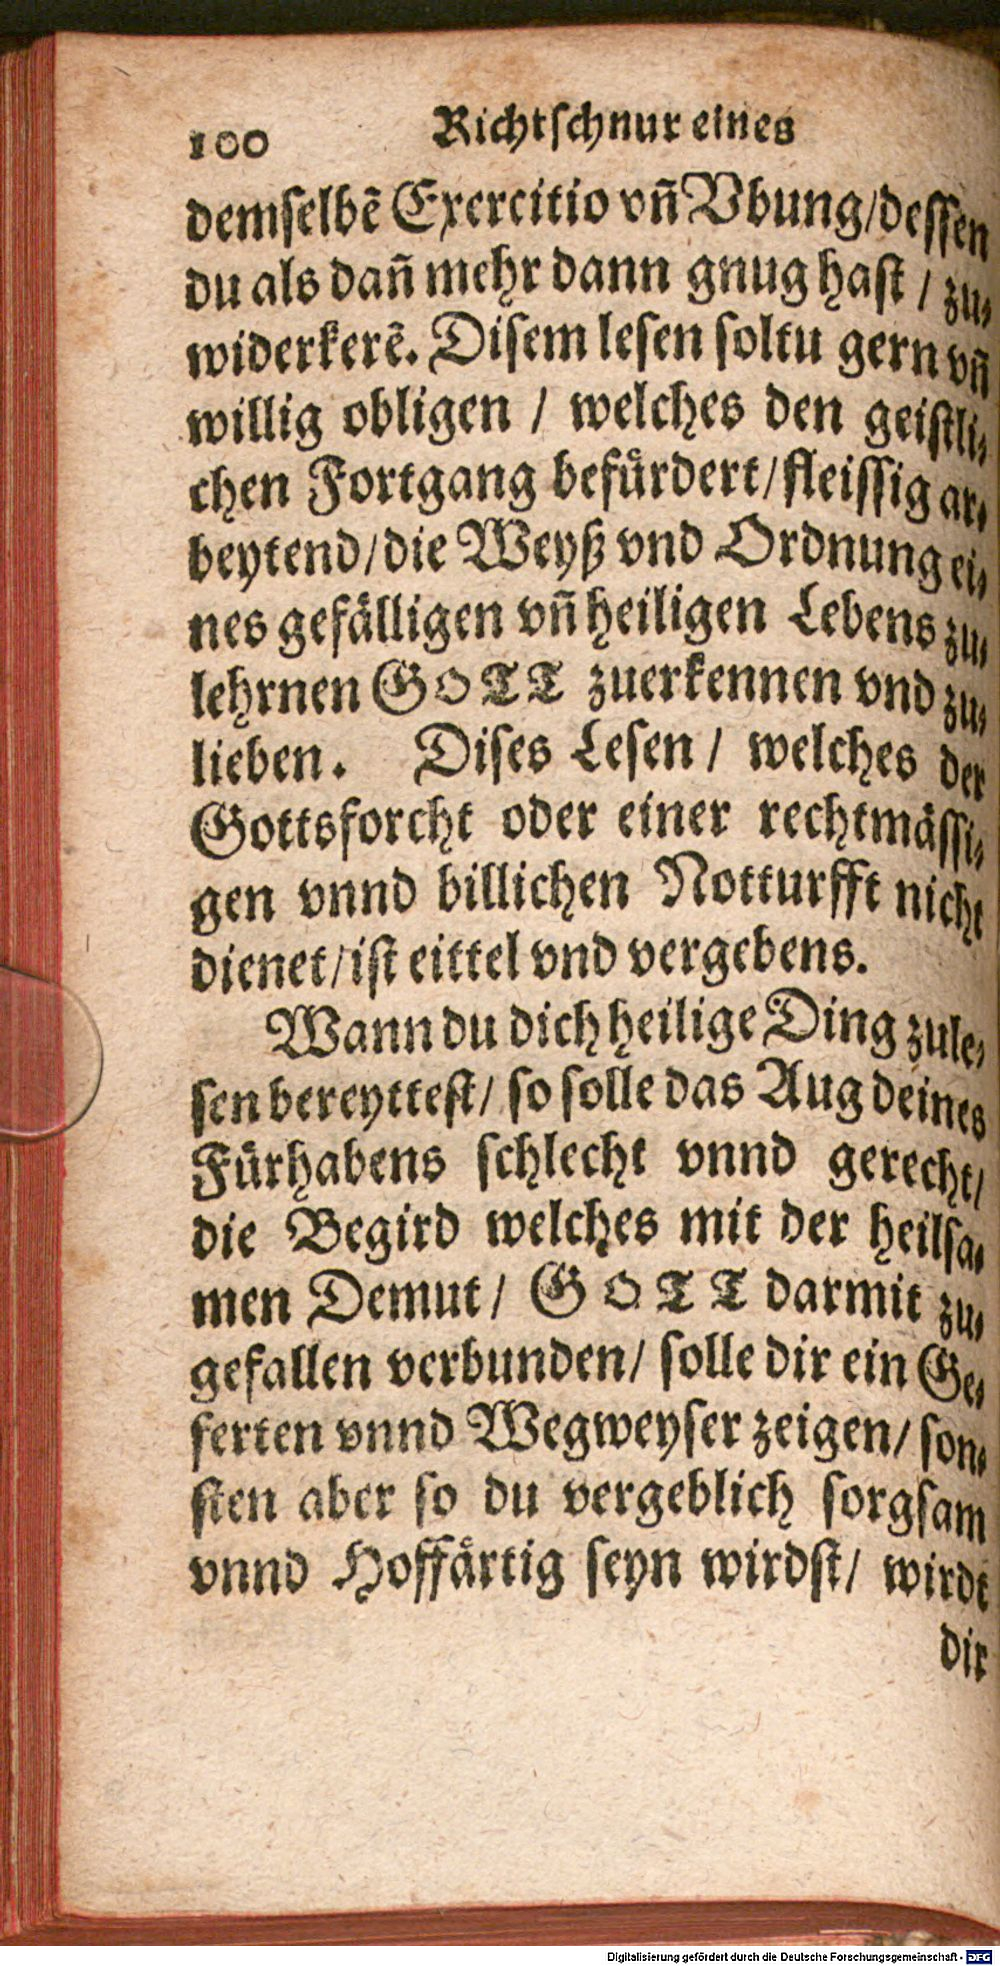 100 Richtſchnur eines
demſelbẽ Exercitio vn̄ Vbung/deſſen
du als dan̄ mehr dann gnug haſt / zu⸗
widerkerẽ. Diſem leſen ſoltu gern vn̄
willig obligen / welches den geiſtli⸗
chen Fortgang befürdert/fleiſſig ar⸗
beytend/die Weyß vnd Ordnung ei⸗
nes gefälligen vn̄ heiligen Lebens zu⸗
lehrnen GOTT zuerkennen vnd zu⸗
lieben. Diſes Leſen / welches der
Gottsforcht oder einer rechtmäſſi⸗
gen vnnd billichen Notturfft nicht
dienet/iſt eittel vnd vergebens.
Wann du dich heilige Ding zule⸗
ſen bereytteſt/ ſo ſolle das Aug deines
Fürhabens ſchlecht vnnd gerecht/
die Begird welches mit der heilſa⸗
men Demut/ GOTT darmit zu⸗
gefallen verbunden/ ſolle dir ein Ge⸗
ferten vnnd Wegweyſer zeigen/ ſon⸗
ſten aber ſo du vergeblich ſorgſam
vnnd Hoffärtig ſeyn wirdſt/ wirdt
dir
Digitalisierung gefördert durch die Deutsche Forschungsgemeinschaft - DFG